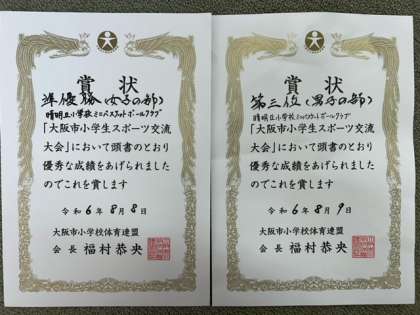 賞状
準優勝(女子の部)
晴明丘小学校ミニバスケットボールクラブ
「大阪市小学生スポーツ交流
大会」において頭書のとおり
優秀な成績をあげられました
のでこれを賞します
令和6年8月8日
大阪市小学校体育連盟
会長 福村恭央
賞状
第三位(男子の部)
晴明丘小学校ミニバスケットボールクラブ
「大阪市小学生スポーツ交流
大会」において頭書のとおり
優秀な成績をあげられました
のでこれを賞します
令和6年8月9日
大阪市小学校体育連盟
会長 福村恭央